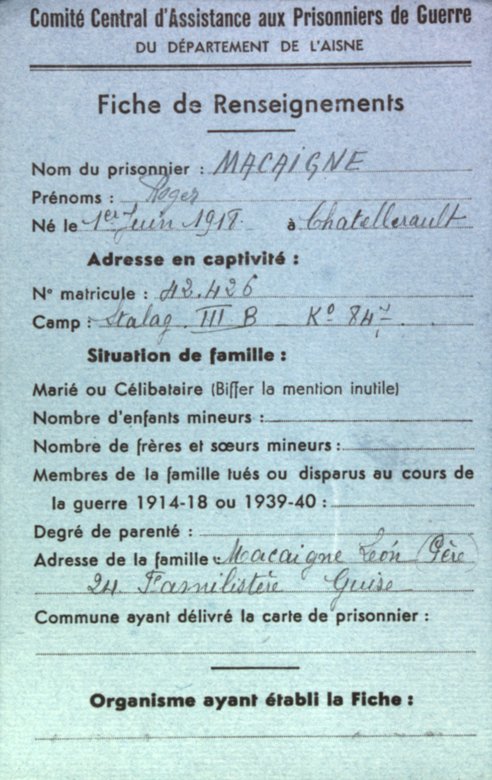 Comité Central d'Assistance aux Prisonniers de Guerre
DU DÉPARTEMENT DE L'AISNE
Fiche de Renseignements
Nom du prisonnier : MACAIGNE
Prénoms : Roger
Né le 1er Juin 1918 à Chatellerault
Adresse en captivité :
N° matricule : 42.426
Camp : Stalag III B – Ko 84
Situation de famille :
Marié ou Célibataire (Biffer la mention inutile)
Nombre d'enfants mineurs :
Nombre de frères et sœurs mineurs :
Membres de la famille tués ou disparus au cours de
la guerre 1914-18 ou 1939-40 :
Degré de parenté :
Adresse de la famille : Macaigne Léon (Père)
24 Familistère Guise
Commune ayant délivré la carte de prisonnier :
Organisme ayant établi la Fiche :